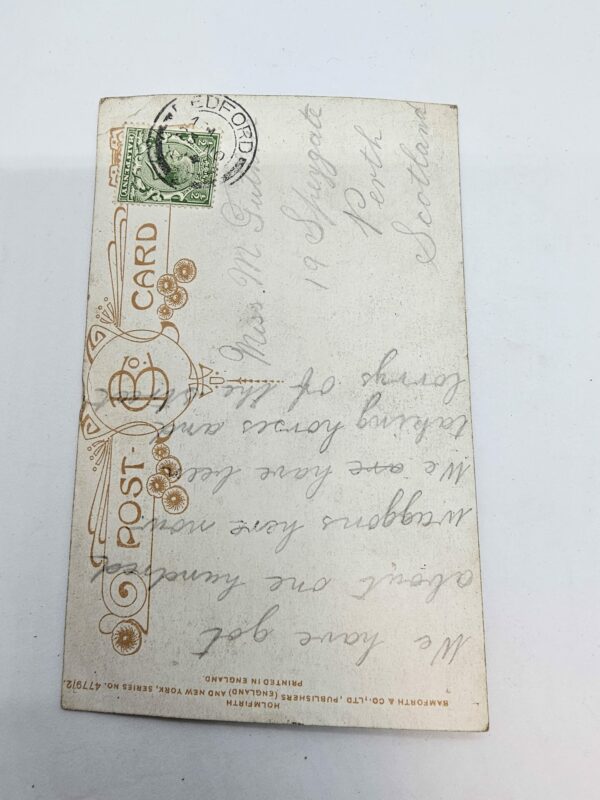 POST-CARD
B & Co.
BEDFORD
HALFPENNY
Miss M.
19 Speygate
Perth
Scotland
We have got
about one hundred
waggons here now
We are have been
taking horses and
lorrys of the street
BAMFORTH & CO., LTD., PUBLISHERS (ENGLAND) AND NEW YORK, SERIES NO. 4779/2.
HOLMFIRTH
PRINTED IN ENGLAND